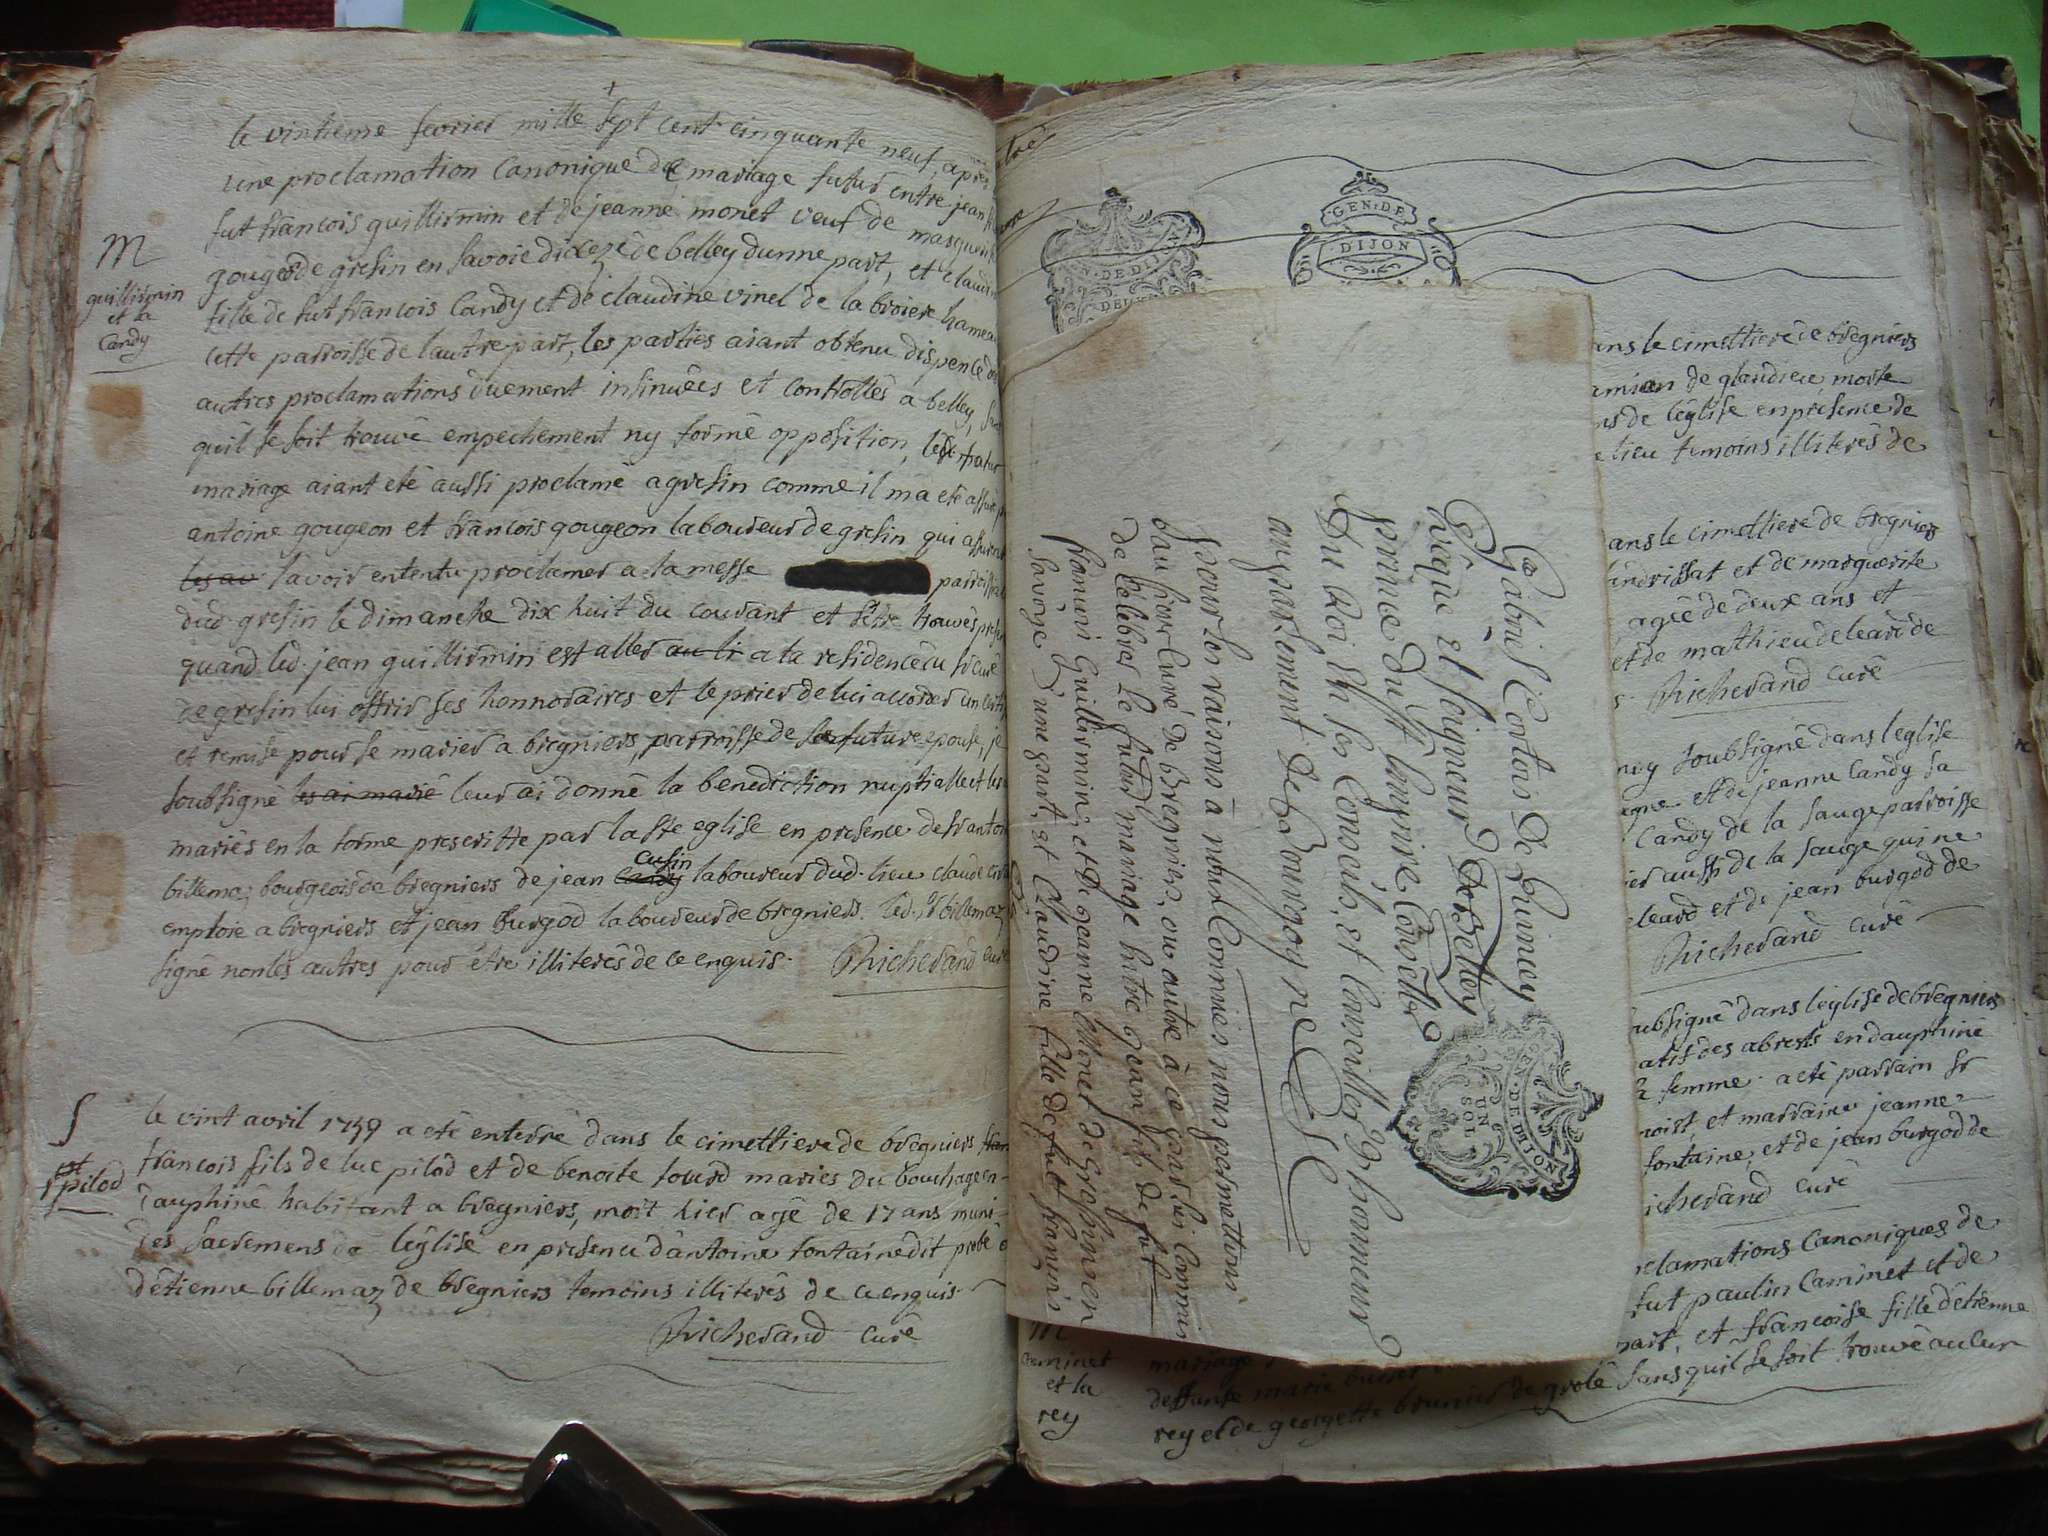 le vintieme fevrier mille sept cent cinquante neuf, après
une proclamation canonique de mariage futur entre jean
fut francois guillirmin et de jeanne monet veuf de marguerite
gougeo de gresin en savoie dioceze de belley dunne part, et claudine
fille de fut francois Candy et de claudine vinel de la broiere hameau
cette parroisse de lautre part, les parties aiant obtenu dispence
autres proclamations duement insinuées et controllés a belley,
quil se soit trouvé empechement ny formé opposition, led. futur
mariage aiant eté aussi proclamé a gresin comme il ma eté assuré
antoine gougeon et francois gougeon laboureur de gresin qui assurent
les av lavoir entendu proclamer a la messe parroissiale
dud. gresin le dimanche dix huit du courant et setre trouvés present
quand led. jean guillirmin est aller au lr a la residence du sr curé
de gresin lui offrir ses honnoraires et le prier de lui accorder un
et remise pour se marier a bregniers, parroisse de sa future epouse, je
soubsigné les ai marié leur ai donné la benediction nuptialle et les
mariés en la forme prescritte par la ste eglise en presence de sr antoine
billemaz bourgeois de bregniers de jean candy cusin laboureur dud. lieu claude
emploié a bregniers et jean burgod laboureur de bregniers. led. sr billemaz
signé non les autres pour être illiterés de ce enquis. Richerand curé
M
guillirmin
et la
Candy
S
pt
pilod
le vint avril 1759 a eté enterré dans le cimettiere de bregniers
francois fils de luc pilod et de benoite tourd mariés du bouchage en
dauphiné habitant a bregniers, mort hier agé de 17 ans muni
des sacremens de léglise en presence dantoine fontaine dit probé
détienne billemaz de bregniers temoins illiterés de ce enquis.
Richerand curé
GEN. DE DIJON
DEUX
GEN. DE
DIJON
Gabriel Cortois De Quincey
Evêque et Seigneur De Belley
prince du St Empire Conseiller
Du Roi En ses Conseils, et Conseiller D'honneur
au parlement De Bourgogne &c
pour les raisons à nous Connües nous permettons
au sieur Curé de Bregnier, ou autre à ce par lui Commis
de Celebrer le futur mariage Entre Jean fils de fut
francois Guillirmin, et de Jeanne Monet de Gresin en
Savoye d'une part, et Claudine fille de fut francois
GEN. DE DIJON
UN
SOL
ans le cimettiere de bregniers
de glandieu morte
ns de léglise en presence de
lieu temoins illiterés de
ans le cimettiere de bregniers
et de marguerite
agée de deux ans et
et de mathieu deleard de
Richerand curé
soubsigné dans leglise
et de jeanne candy sa
candy de la sauge parroisse
ier aussi de la sauge qui ne
eleard et de jean burgod de
Richerand curé
oubsigné dans léglise de bregniers
natif des abrests en dauphiné
femme. a eté parrain sr
noist, et marraine jeanne
fontaine, et de jean burgod de
icherand curé
oclamations canoniques de
fut paulin caminet et de
part, et francoise fille détienne
M
caminet
et la
rey
mariage
deffunte marie
rey et de georgette brunier de grolé sans quil se soit trouvé aucun